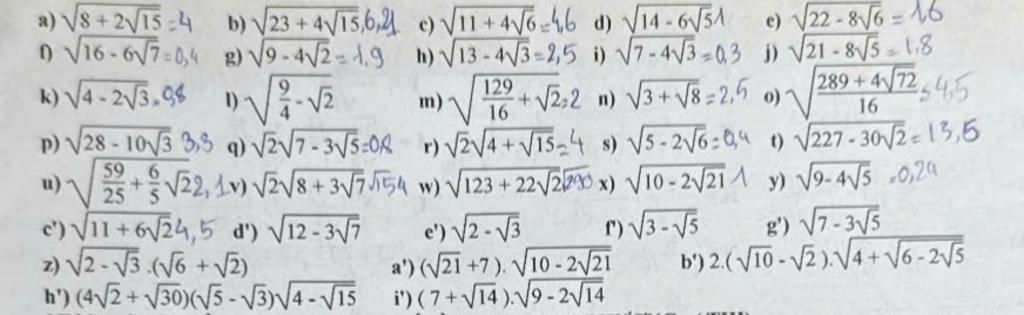 a) √(8 + 2√15) = 4 b) √(23 + 4√15) 6,21 c) √(11 + 4√6) = 4,6 d) √(14 - 6√5) 1 e) √(22 - 8√6) = 1,6
f) √(16 - 6√7) = 0,4 g) √(9 - 4√2) = 1,9 h) √(13 - 4√3) = 2,5 i) √(7 - 4√3) = 0,3 j) √(21 - 8√5) = 1,8
k) √(4 - 2√3) = 0,8 l) √(9/4 - √2) m) √(129/16 + √2) = 2 n) √(3 + √8) = 2,5 o) √((289 + 4√72)/16) = 4,5
p) √(28 - 10√3) 3,3 q) √2√(7 - 3√5) = 0,8 r) √2√(4 + √15) = 4 s) √(5 - 2√6) = 0,4 t) √(227 - 30√2) = 13,5
u) √(59/25 + 6/5 √2) 2,1 v) √2√(8 + 3√7) √154 w) √(123 + 22√2) x) √(10 - 2√21) 1 y) √(9 - 4√5) = 0,24
c') √(11 + 6√2) 4,5 d') √(12 - 3√7) e') √(2 - √3) f') √(3 - √5) g') √(7 - 3√5)
z) √(2 - √3) .(√6 + √2) a') (√21 + 7). √(10 - 2√21) b') 2.(√10 - √2).√(4 + √(6 - 2√5))
h') (4√2 + √30)(√5 - √3)√(4 - √15) i') ( 7 + √14 ).√(9 - 2√14)